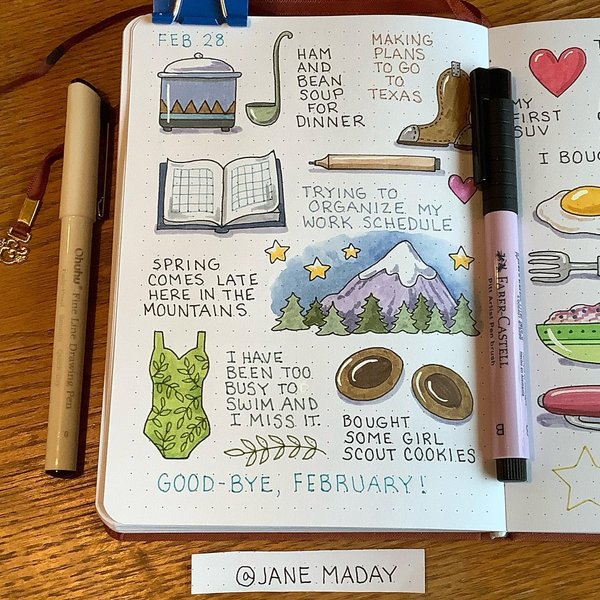 FEB. 28
HAM
AND
BEAN
SOUP
FOR
DINNER
MAKING
PLANS
TO GO
TO
TEXAS
TRYING TO
ORGANIZE MY
WORK SCHEDULE
SPRING
COMES LATE
HERE IN THE
MOUNTAINS.
I HAVE
BEEN TOO
BUSY TO
SWIM AND
I MISS IT.
BOUGHT
SOME GIRL
SCOUT COOKIES
GOOD-BYE, FEBRUARY!
MY
FIRST
SUV
I BOU
Ohuhu Fine Line Drawing Pen
FABER-CASTELL
Pitt Artist Pen brush
B
@JANE MADAY